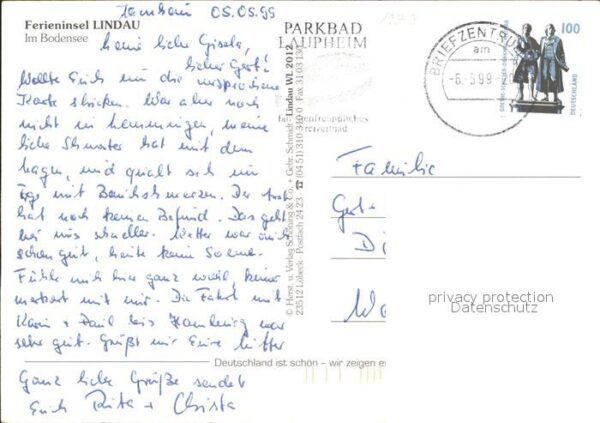 05.05.99
Ferieninsel LINDAU
Im Bodensee
Meine liebe Gisela,
lieber Gert!
Wollte Euch nur die versprochene
Karte schicken. War aber noch
nicht in Memmingen, meine
liebe Schwester hat mit dem
Magen, und quält sich
mit Bauchschmerzen. Der Arzt
hat noch keinen Befund. Das geht
bei uns schneller. Wetter war
schon gut, heute keine Sonne.
Fühle mich hier ganz wohl, keiner
mit mir. Die Fahrt mit
Karin + Paul bis Hamburg war
sehr gut. Grüßt mir Eure Mutter
Ganz liebe Grüße sendet
Euch Rita + Christa
PARKBAD
LAUPHEIM
familienfreundliches
BRIEFZENTRUM
am
-6.-5.99-20
100
DEUTSCHLAND
© Herst. u. Verlag Schöning & Co. + Gebr. Schmidt
23512 Lübeck · Postfach 24 23 ☎ (04 51) 310 31 0 Fax 31 03 130
Lindau WL 2012
Familie
Gert
Deutschland ist schön – wir zeigen es
privacy protection
Datenschutz